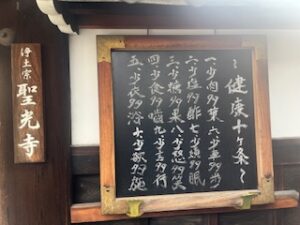 〜健康十ヶ条〜
一、少肉多菜 六、少車多歩
二、少塩多酢 七、少煩多眠
三、少糖多果 八、少怒多笑
四、少食多噛 九、少言多行
五、少衣多浴 十、少欲多施
浄土宗
聖光寺